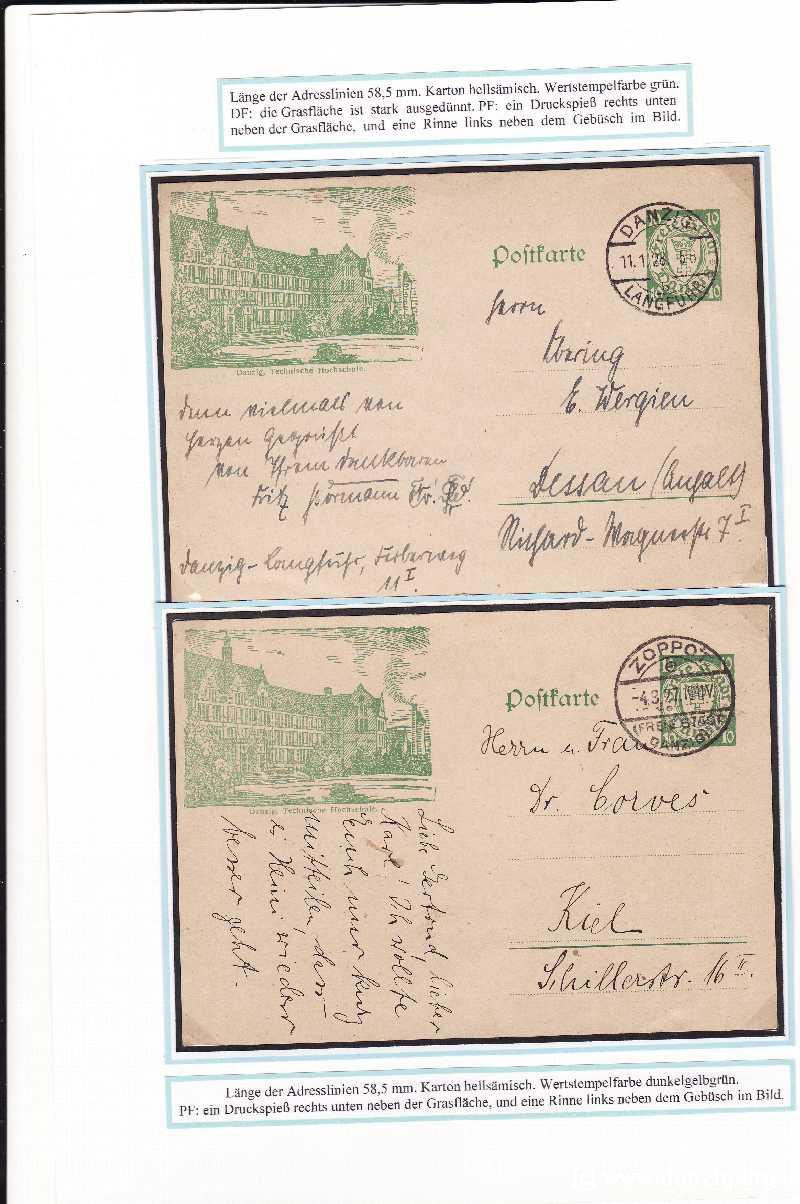 Länge der Adresslinien 58,5 mm. Karton hellsämisch. Wertstempelfarbe grün.
DF: die Grasfläche ist stark ausgedünnt. PF: ein Druckspieß rechts unten
neben der Grasfläche, und eine Rinne links neben dem Gebüsch im Bild.
Postkarte
DANZIG
11.1.28
LANGFUHR
10
10
Danzig, Technische Hochschule.
Herrn
E. Wergien
Dessau (Anhalt)
Richard-Wagnerstr 7 I
denn vielmals von
Herzen Gegrüßt
von Ihrem dankbaren
Fritz
Danzig-Langfuhr,
11 I.
Postkarte
ZOPPOT
-4.3.27
(FREIE STADT
DANZIG)
10
10
Danzig, Technische Hochschule.
Herrn u. Frau
Dr. Corves
Kiel
Schillerstr. 16 II.
Liebe Gertrud, lieber
Karl! Ich wollte
Euch nur kurz
mitteilen, dass
es Heini wieder
besser geht.
Länge der Adresslinien 58,5 mm. Karton hellsämisch. Wertstempelfarbe dunkelgelbgrün.
PF: ein Druckspieß rechts unten neben der Grasfläche, und eine Rinne links neben dem Gebüsch im Bild.